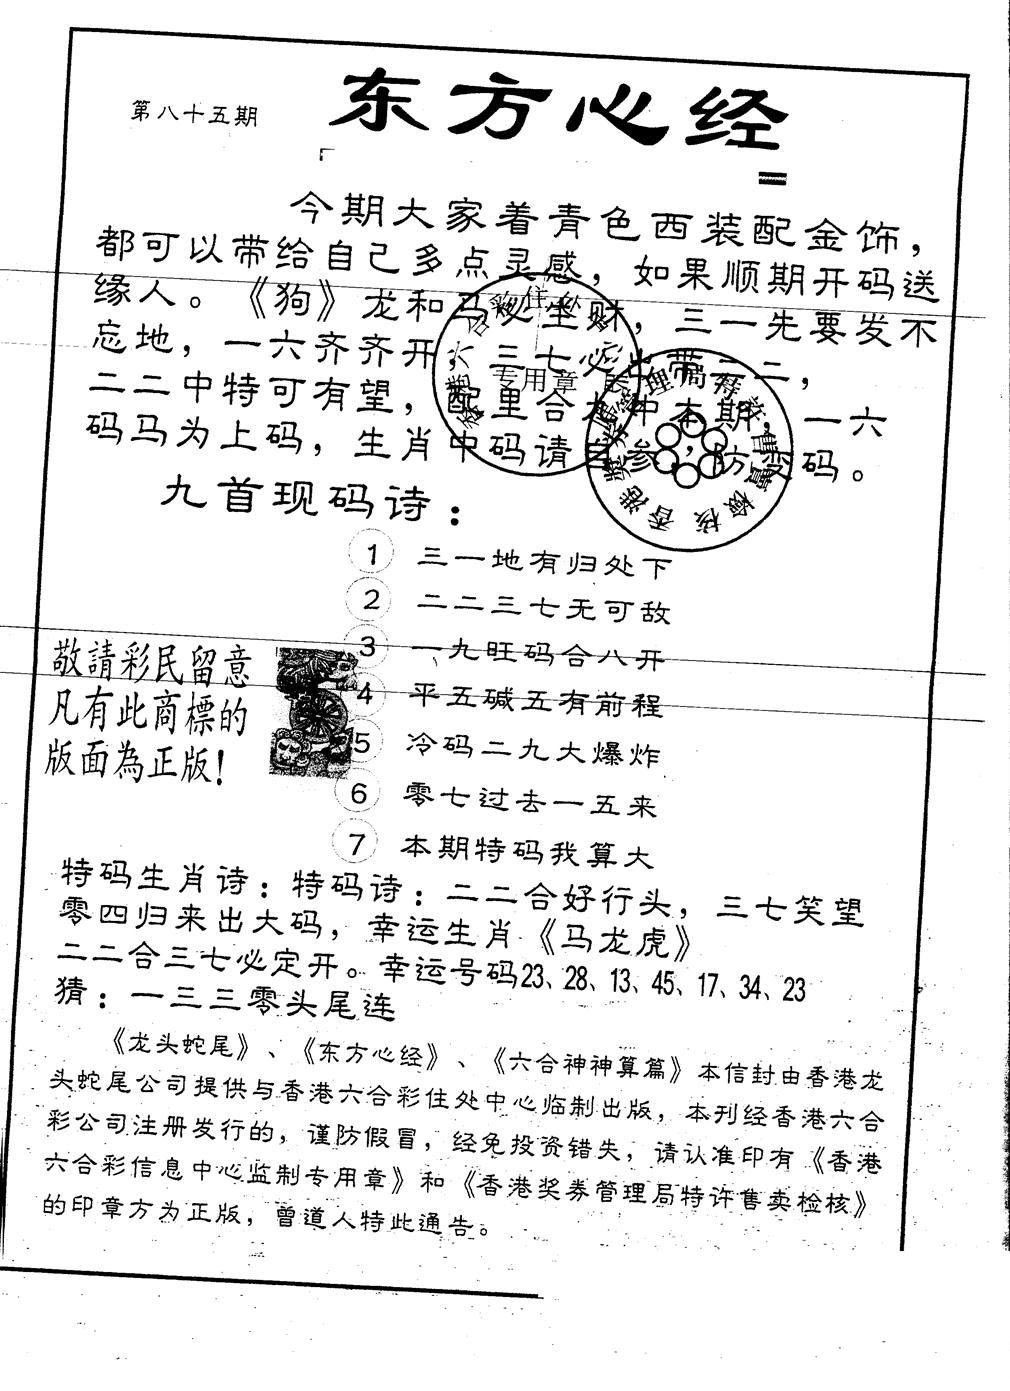 第八十五期
东方心经
今期大家着青色西装配金饰，
都可以带给自己多点灵感，如果顺期开码送
缘人。《狗》龙和马又生财，三一先要发不
忘地，一六齐齐开，三七必出带二二，
二二中特可有望，配里合九冲本期，一六
码马为上码，生肖中码请自参，防变码。
九首现码诗：
1 三一地有归处下
2 二二三七无可敌
3 一九旺码合八开
4 平五碱五有前程
5 冷码二九大爆炸
6 零七过去一五来
7 本期特码我算大
敬請彩民留意
凡有此商標的
版面為正版!
特码生肖诗：特码诗：二二合好行头，三七笑望
零四归来出大码，幸运生肖《马龙虎》
二二合三七必定开。幸运号码23、28、13、45、17、34、23
猜：一三三零头尾连
《龙头蛇尾》、《东方心经》、《六合神神算篇》本信封由香港龙
头蛇尾公司提供与香港六合彩住处中心临制出版，本刊经香港六合
彩公司注册发行的，谨防假冒，经免投资错失，请认准印有《香港
六合彩信息中心监制专用章》和《香港奖券管理局特许售卖检核》
的印章方为正版，曾道人特此通告。
专用章